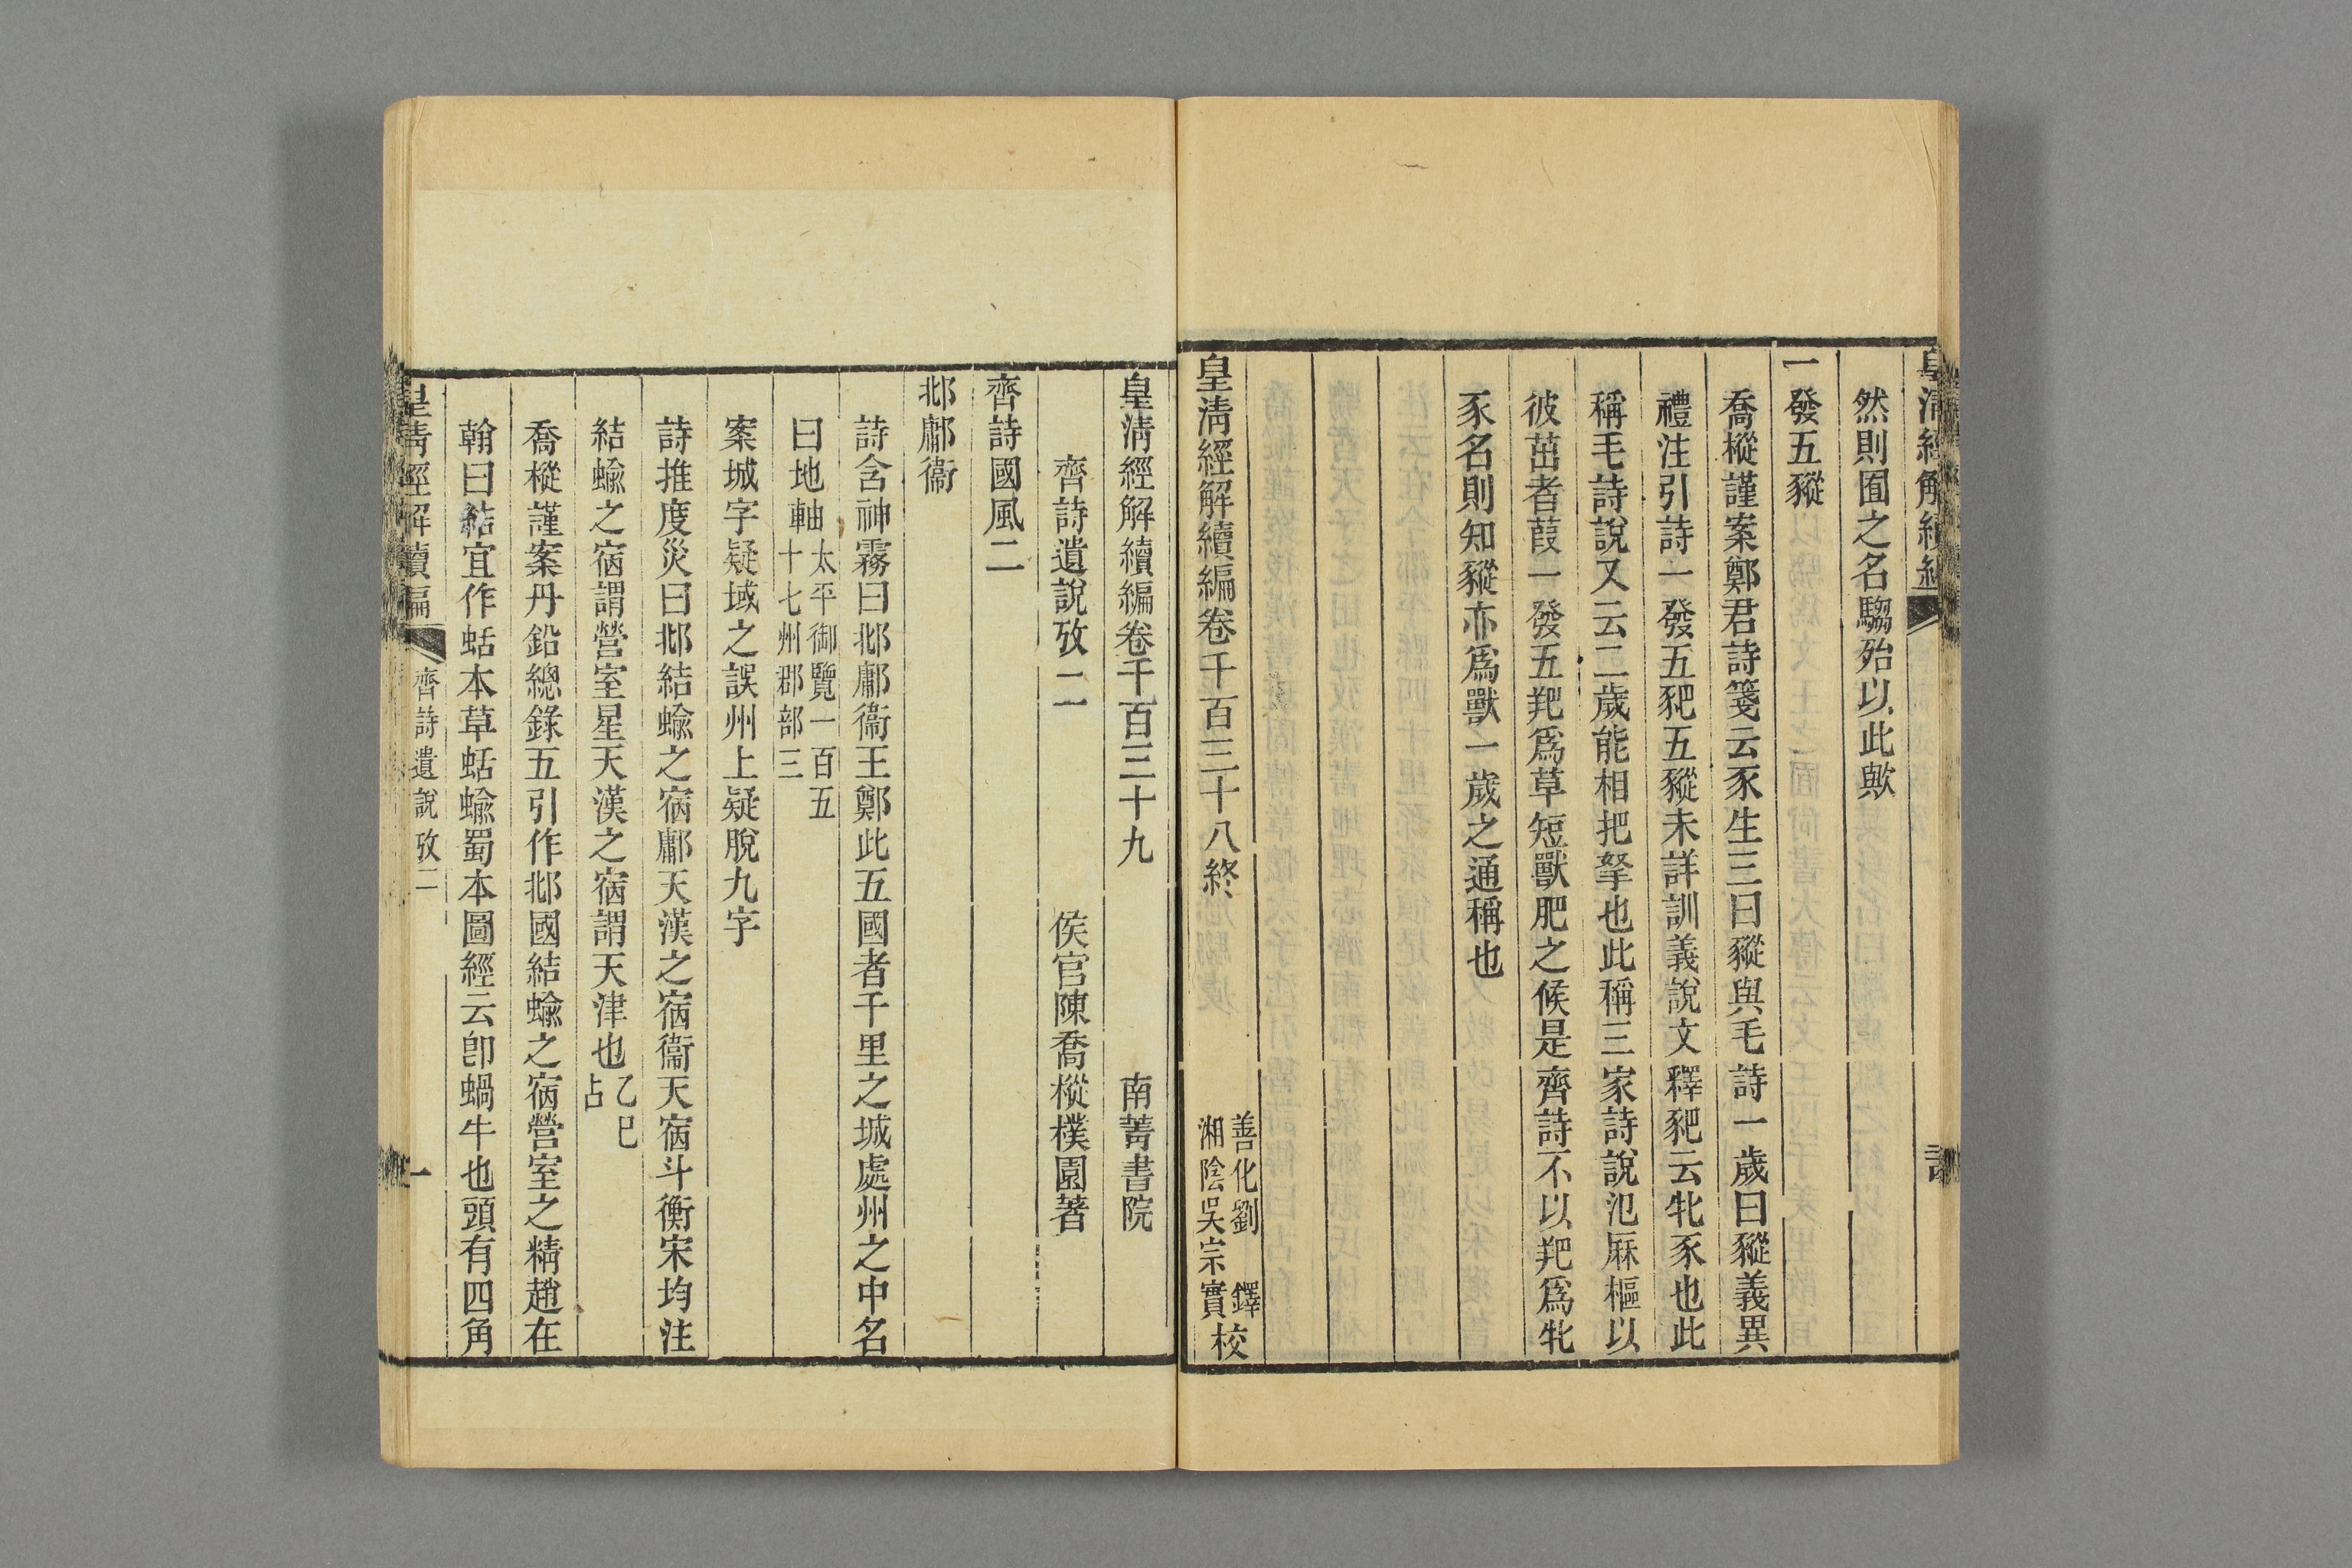 然則囿之名騶殆以此歟
一發五豵
喬樅謹案鄭君詩箋云豕生三曰豵與毛詩一歲曰豵義異
禮注引詩一發五豝五豵未詳訓義說文釋豝云牝豕也此
稱毛詩說又云二歲能相把拏也此稱三家詩說氾厤樞以
彼茁者葭一發五豝爲草短獸肥之候是齊詩不以豝爲牝
豕名則知豵亦爲獸一歲之通稱也
皇清經解續編卷千百三十八終
善化劉鐸
湘陰吳宗實校
皇清經解續編卷千百三十九
南菁書院
齊詩遺說攷二
侯官陳喬樅樸園著
齊詩國風二
邶鄘衞
詩含神霧曰邶鄘衞王鄭此五國者千里之城處州之中名
曰地軸太平御覽一百五十七州郡部三
案城字疑域之誤州上疑脫九字
詩推度災曰邶結蝓之宿鄘天漢之宿衞天宿斗衡宋均注
結蝓之宿謂營室星天漢之宿謂天津也乙巳占
喬樅謹案丹鉛總錄五引作邶國結蝓之宿營室之精趙在
翰曰結宜作蛞本草蛞蝓蜀本圖經云卽蝸牛也頭有四角
皇清經解續編
齊詩遺說攷二
一